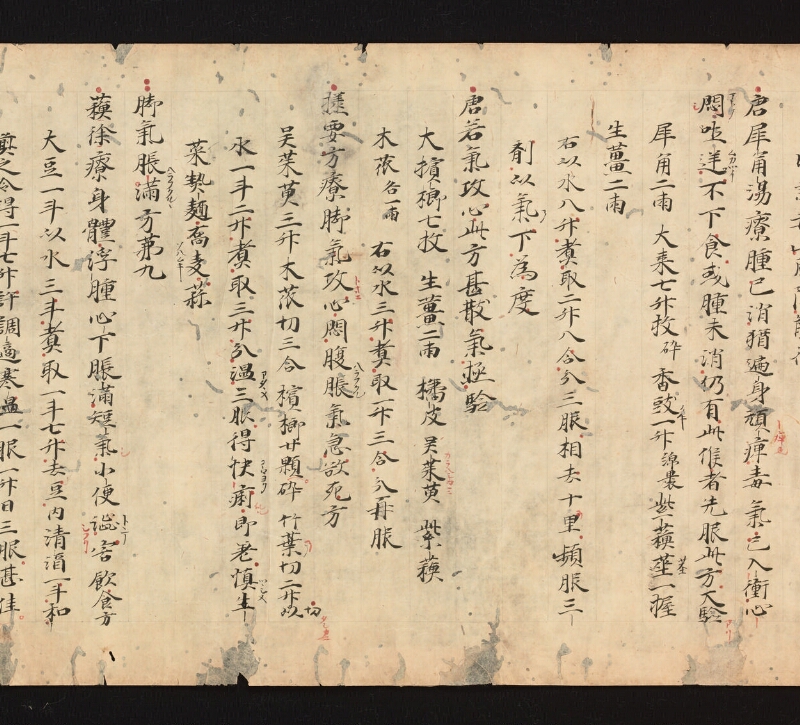 唐犀角湯療腫已消猶遍身頑痺毒氣已入衝心
悶吐逆不下食或腫未消仍有此候者先服此方大驗
犀角二兩 大棗七枚 碎 香豉一升 綿裹 紫蘓莖一握
生薑二兩
右以水八升煮取二升八合分三服相去十里頻服三
劑以氣下為度
唐若氣攻心此方甚散氣極驗
大檳榔七枚 生薑二兩 橘皮 吳茱萸 紫蘓
木苽 各一兩 右以水三升煮取一升三合分再服
撻要方療脚氣攻心悶腹脹氣急欲死方
吳茱萸三升 木苽切三合 檳榔廿顆碎 竹葉切二升以
水一斗二升煮取三升分温三服得快痢即差慎生
菜熱麵喬麦蒜
脚氣脹滿方苐九
蘓徐療身體浮腫心下脹滿短氣小便澁害飲食方
大豆一斗以水三斗煮取一斗七升去豆內清酒一斗和
煎之令得一斗七升許調適寒温一服一升日三服甚佳